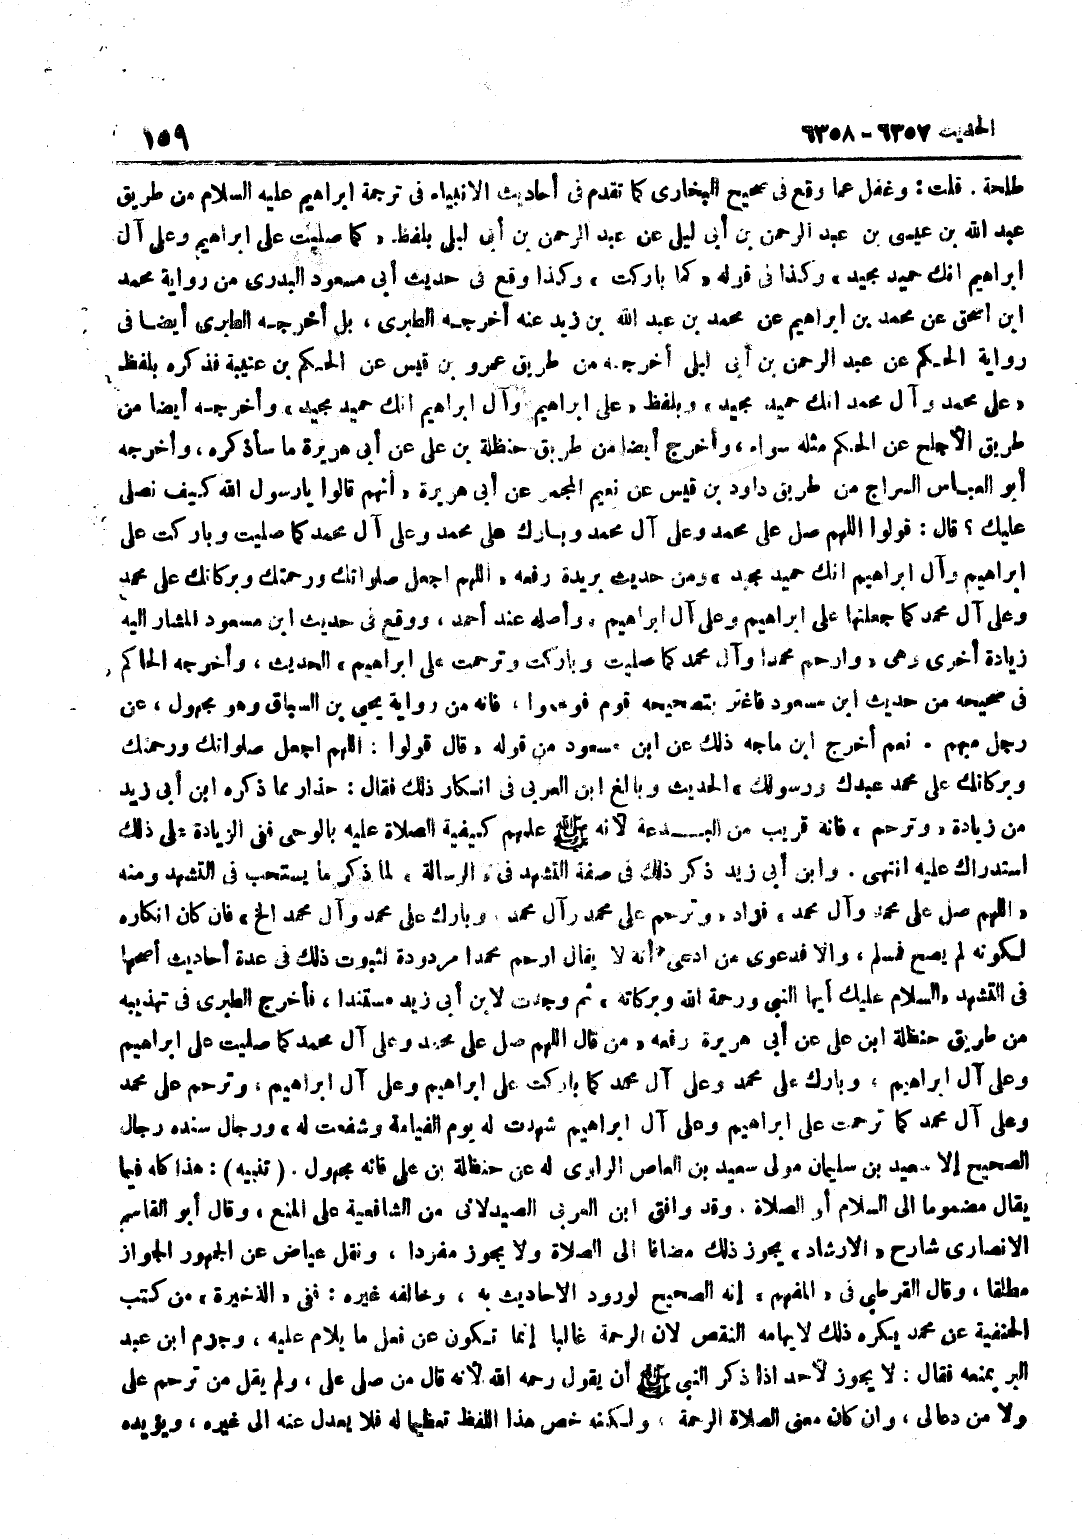 الحديث ٦٣٥٧ - ٦٣٥٨
١٥٩
طلحة . قلت : وغفل عما وقع فى صحيح البخارى كما تقدم فى أحاديث الانبياء فى ترجمة ابراهيم عليه السلام من طريق
عبد الله بن عيسى بن عبد الرحمن بن أبى ليلى عن عبد الرحمن بن أبى ليلى بلفظ « كما صليت على ابراهيم وعلى آل
ابراهيم انك حميد مجيد ، وكذا فى قوله « كما باركت » وكذا وقع فى حديث أبى مسعود البدرى من رواية محمد
ابن اسحق عن محمد بن ابراهيم عن محمد بن عبد الله بن زيد عنه أخرجه الطبرى ، بل أخرجه الطبرى أيضا فى
رواية الحكم عن عبد الرحمن بن أبى ليلى أخرجه من طريق عمرو بن قيس عن الحكم بن عتيبة فذكره بلفظ
« على محمد وآل محمد انك حميد مجيد ، وبلفظ « على ابراهيم وآل ابراهيم انك حميد مجيد » وأخرجه أيضا من
طريق الأجلح عن الحكم مثله سواء ، وأخرج أيضا من طريق حنظلة بن على عن أبى هريرة ما سأذكره ، وأخرجه
أبو العباس السراج من طريق داود بن قيس عن نعيم المجمر عن أبى هريرة « أنهم قالوا يارسول الله كيف نصلى
عليك ؟ قال : قولوا اللهم صل على محمد وعلى آل محمد وبارك على محمد وعلى آل محمد كما صليت وباركت على
ابراهيم وآل ابراهيم انك حميد مجيد » ومن حديث بريدة رفعه « اللهم اجعل صلواتك ورحمتك وبركاتك على محمد
وعلى آل محمد كما جعلتها على ابراهيم وعلى آل ابراهيم » وأصله عند أحمد ، ووقع فى حديث ابن مسعود المشار اليه
زيادة أخرى وهى « وارحم محمدا وآل محمد كما صليت وباركت وترحمت على ابراهيم » الحديث ، وأخرجه الحاكم
فى صحيحه من حديث ابن مسعود فاغتر بتصحيحه قوم فوهموا ، فانه من رواية يحيى بن السباق وهو مجهول ، عن
رجل مبهم . نعم أخرج ابن ماجه ذلك عن ابن مسعود من قوله « قال قولوا : اللهم اجعل صلواتك ورحمتك
وبركاتك على محمد عبدك ورسولك » الحديث وبالغ ابن العربى فى انكار ذلك فقال : حذار مما ذكره ابن أبى زيد
من زيادة « وترحم » فانه قريب من البدعة لأنه ﷺ علمهم كيفية الصلاة عليه بالوحى ففى الزيادة على ذلك
استدراك عليه انتهى . وابن أبى زيد ذكر ذلك فى صفة التشهد فى « الرسالة » لما ذكر ما يستحب فى التشهد ومنه
« اللهم صل على محمد وآل محمد » فزاد « وترحم على محمد وآل محمد ، وبارك على محمد وآل محمد الخ » فان كان انكاره
لكونه لم يصح فمسلم ، والا فدعوى من ادعى أنه لا يقال ارحم محمدا مردودة لثبوت ذلك فى عدة أحاديث أصحها
فى التشهد « السلام عليك أيها النبى ورحمة الله وبركاته » ثم وجدت لابن أبى زيد مستندا ، فأخرج الطبرى فى تهذيبه
من طريق حنظلة ابن على عن أبى هريرة رفعه « من قال اللهم صل على محمد وعلى آل محمد كما صليت على ابراهيم
وعلى آل ابراهيم ، وبارك على محمد وعلى آل محمد كما باركت على ابراهيم وعلى آل ابراهيم ، وترحم على محمد
وعلى آل محمد كما ترحمت على ابراهيم وعلى آل ابراهيم شهدت له يوم القيامة وشفعت له » ورجال سنده رجال
الصحيح إلا سعيد بن سليمان مولى سعيد بن العاص الراوى له عن حنظلة بن على فانه مجهول . ( تنبيه ) : هذا كله فيما
يقال مضموما الى السلام أو الصلاة . وقد وافق ابن العربى الصيدلانى من الشافعية على المنع ، وقال أبو القاسم
الانصارى شارح « الارشاد » يجوز ذلك مضافا الى الصلاة ولا يجوز مفردا ، ونقل عياض عن الجمهور الجواز
مطلقا ، وقال القرطبى فى « المفهم » إنه الصحيح لورود الاحاديث به ، وخالفه غيره : ففى « الذخيرة » من كتب
الحنفية عن محمد يكره ذلك لايهامه النقص لان الرحمة غالبا إنما تكون عن فعل ما يلام عليه ، وجزم ابن عبد
البر بمنعه فقال : لا يجوز لأحد اذا ذكر النبى ﷺ أن يقول رحمه الله لأنه قال من صلى على ، ولم يقل من ترحم على
ولا من دعا لى ، وان كان معنى الصلاة الرحمة ، ولكنه خص هذا اللفظ تعظيما له فلا يعدل عنه الى غيره ، ويؤيده